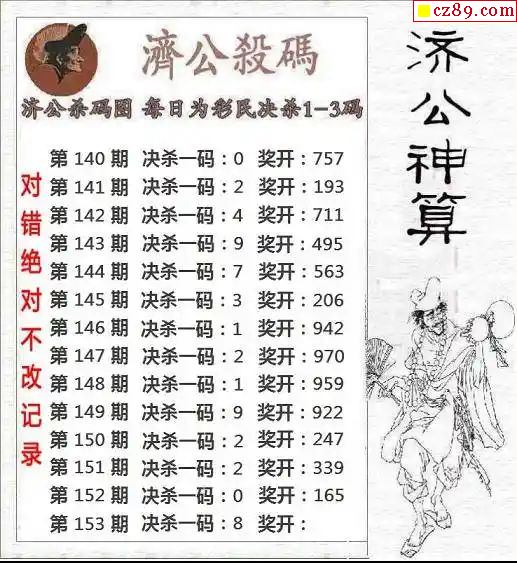 cz89.com
濟公殺碼
济公杀码图 每日为彩民决杀1-3码
第 140 期 决杀一码：0 奖开：757
第 141 期 决杀一码：2 奖开：193
第 142 期 决杀一码：4 奖开：711
第 143 期 决杀一码：9 奖开：495
第 144 期 决杀一码：7 奖开：563
第 145 期 决杀一码：3 奖开：206
第 146 期 决杀一码：1 奖开：942
第 147 期 决杀一码：2 奖开：970
第 148 期 决杀一码：1 奖开：959
第 149 期 决杀一码：9 奖开：922
第 150 期 决杀一码：2 奖开：247
第 151 期 决杀一码：2 奖开：339
第 152 期 决杀一码：0 奖开：165
第 153 期 决杀一码：8 奖开：
对错绝对不改记录
济公神算